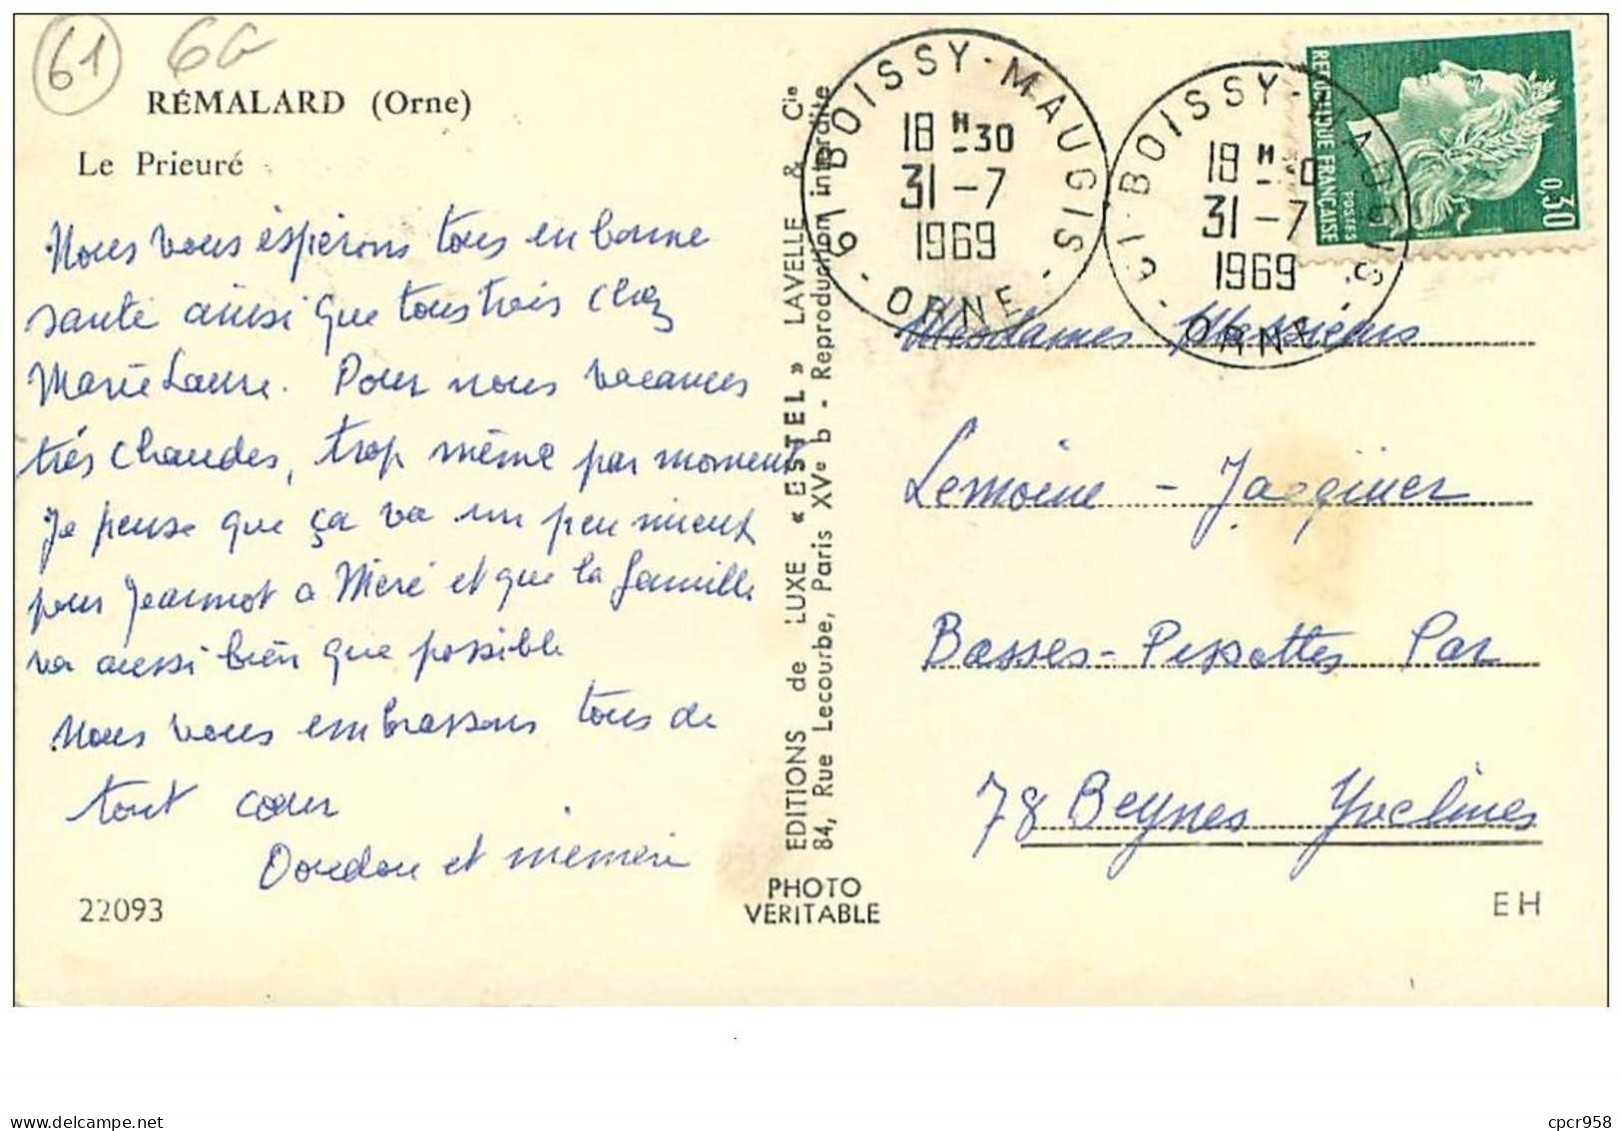 61
RÉMALARD (Orne)
Le Prieuré
Nous vous éspérons tous en bonne
santé ainsi que tous trois chez
Marie Laure. Pour nous vacances
trés chaudes, trop même par moment
Je pense que ça va un peu mieux
pour Jeannot a Méré et que la famille
va aussi bien que possible
Nous vous embrassons tous de
tout cœur
et mémère
22093
EDITIONS de LUXE « ESTEL » LAVELLE & Cie
84, Rue Lecourbe, Paris XVe b - Reproduction interdite
PHOTO
VERITABLE
61 BOISSY-MAUGIS
18 H-30
31-7
1969
- ORNE -
61 BOISSY-MAUGIS
18 H
31-7
1969
- ORNE -
REPUBLIQUE FRANÇAISE
POSTES
0,30
Mesdames Messieurs
Lemoine -
Basses-Pissottes Par
78 Beynes Yvelines
EH
www.delcampe.net
cpcr958